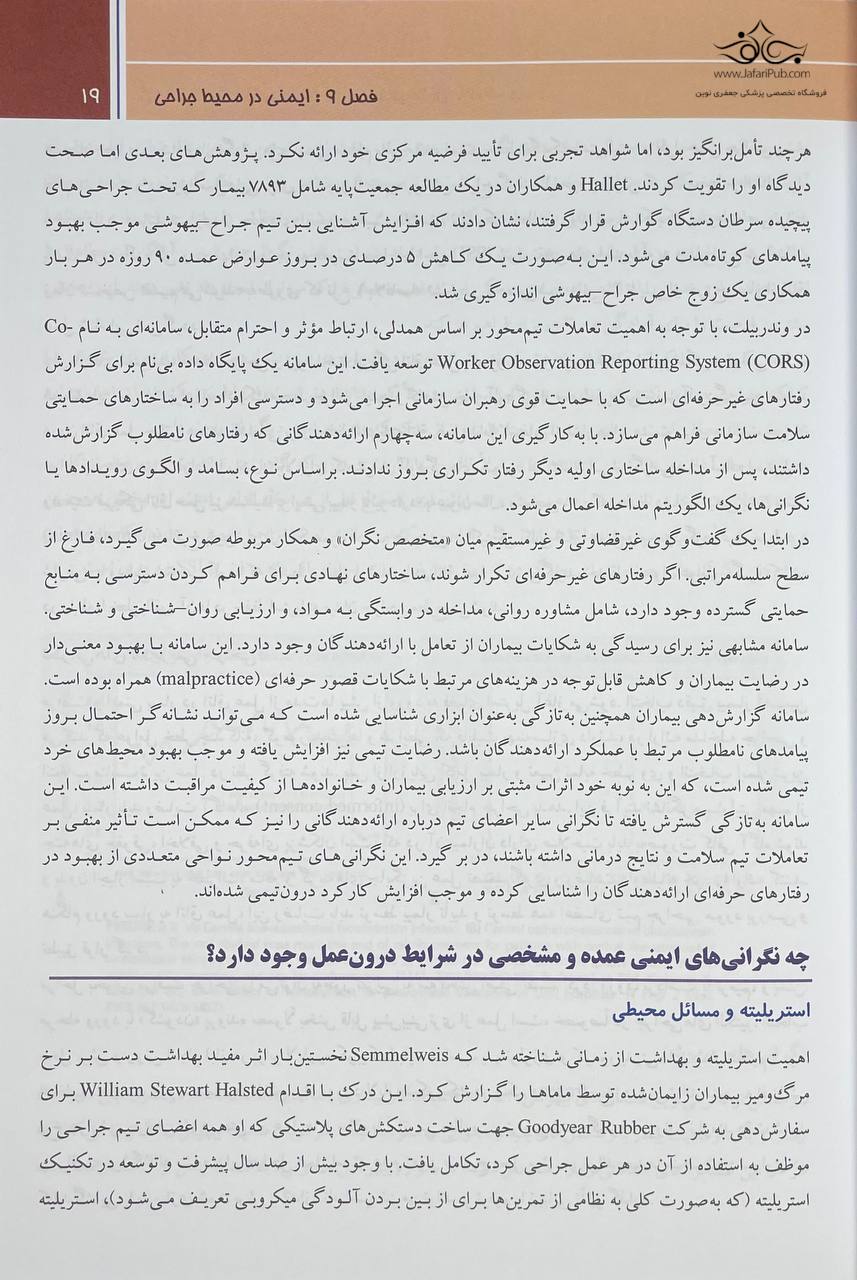 www.JafariPub.com
فروشگاه تخصصی پزشکی جعفری نوین
فصل ۹ : ایمنی در محیط جراحی
۱۹
هرچند تأمل‌برانگیز بود، اما شواهد تجربی برای تأیید فرضیه مرکزی خود ارائه نکرد. پژوهش‌های بعدی اما صحت
دیدگاه او را تقویت کردند. Hallet و همکاران در یک مطالعه جمعیت‌پایه شامل ۷۸۹۳ بیمار که تحت جراحی‌های
پیچیده سرطان دستگاه گوارش قرار گرفتند، نشان دادند که افزایش آشنایی بین تیم جراح–بیهوشی موجب بهبود
پیامدهای کوتاه‌مدت می‌شود. این به‌صورت یک کاهش ۵ درصدی در بروز عوارض عمده ۹۰ روزه در هر بار
همکاری یک زوج خاص جراح–بیهوشی اندازه‌گیری شد.
در وندربیلت، با توجه به اهمیت تعاملات تیم‌محور بر اساس همدلی، ارتباط مؤثر و احترام متقابل، سامانه‌ای به نام Co-
Worker Observation Reporting System (CORS) توسعه یافت. این سامانه یک پایگاه داده بی‌نام برای گزارش
رفتارهای غیرحرفه‌ای است که با حمایت قوی رهبران سازمانی اجرا می‌شود و دسترسی افراد را به ساختارهای حمایتی
سلامت سازمانی فراهم می‌سازد. با به‌کارگیری این سامانه، سه‌چهارم ارائه‌دهندگانی که رفتارهای نامطلوب گزارش‌شده
داشتند، پس از مداخله ساختاری اولیه دیگر رفتار تکراری بروز ندادند. براساس نوع، بسامد و الگوی رویدادها یا
نگرانی‌ها، یک الگوریتم مداخله اعمال می‌شود.
در ابتدا یک گفت‌وگوی غیرقضاوتی و غیرمستقیم میان «متخصص نگران» و همکار مربوطه صورت می‌گیرد، فارغ از
سطح سلسله‌مراتبی. اگر رفتارهای غیرحرفه‌ای تکرار شوند، ساختارهای نهادی برای فراهم کردن دسترسی به منابع
حمایتی گسترده وجود دارد، شامل مشاوره روانی، مداخله در وابستگی به مواد، و ارزیابی روان–شناختی و شناختی.
سامانه مشابهی نیز برای رسیدگی به شکایات بیماران از تعامل با ارائه‌دهندگان وجود دارد. این سامانه با بهبود معنی‌دار
در رضایت بیماران و کاهش قابل‌توجه در هزینه‌های مرتبط با شکایات قصور حرفه‌ای (malpractice) همراه بوده است.
سامانه گزارش‌دهی بیماران همچنین به‌تازگی به‌عنوان ابزاری شناسایی شده است که می‌تواند نشانه‌گر احتمال بروز
پیامدهای نامطلوب مرتبط با عملکرد ارائه‌دهندگان باشد. رضایت تیمی نیز افزایش یافته و موجب بهبود محیط‌های خرد
تیمی شده است، که این به نوبه خود اثرات مثبتی بر ارزیابی بیماران و خانواده‌ها از کیفیت مراقبت داشته است. این
سامانه به‌تازگی گسترش یافته تا نگرانی سایر اعضای تیم درباره ارائه‌دهندگانی را نیز که ممکن است تأثیر منفی بر
تعاملات تیم سلامت و نتایج درمانی داشته باشند، در بر گیرد. این نگرانی‌های تیم‌محور نواحی متعددی از بهبود در
رفتارهای حرفه‌ای ارائه‌دهندگان را شناسایی کرده و موجب افزایش کارکرد درون‌تیمی شده‌اند.
چه نگرانی‌های ایمنی عمده و مشخصی در شرایط درون‌عمل وجود دارد؟
استریلیته و مسائل محیطی
اهمیت استریلیته و بهداشت از زمانی شناخته شد که Semmelweis نخستین‌بار اثر مفید بهداشت دست بر نرخ
مرگ‌ومیر بیماران زایمان‌شده توسط ماماها را گزارش کرد. این درک با اقدام William Stewart Halsted برای
سفارش‌دهی به شرکت Goodyear Rubber جهت ساخت دستکش‌های پلاستیکی که او همه اعضای تیم جراحی را
موظف به استفاده از آن در هر عمل جراحی کرد، تکامل یافت. با وجود بیش از صد سال پیشرفت و توسعه در تکنیک
استریلیته (که به‌صورت کلی به نظامی از تمرین‌ها برای از بین بردن آلودگی میکروبی تعریف می‌شود)، استریلیته